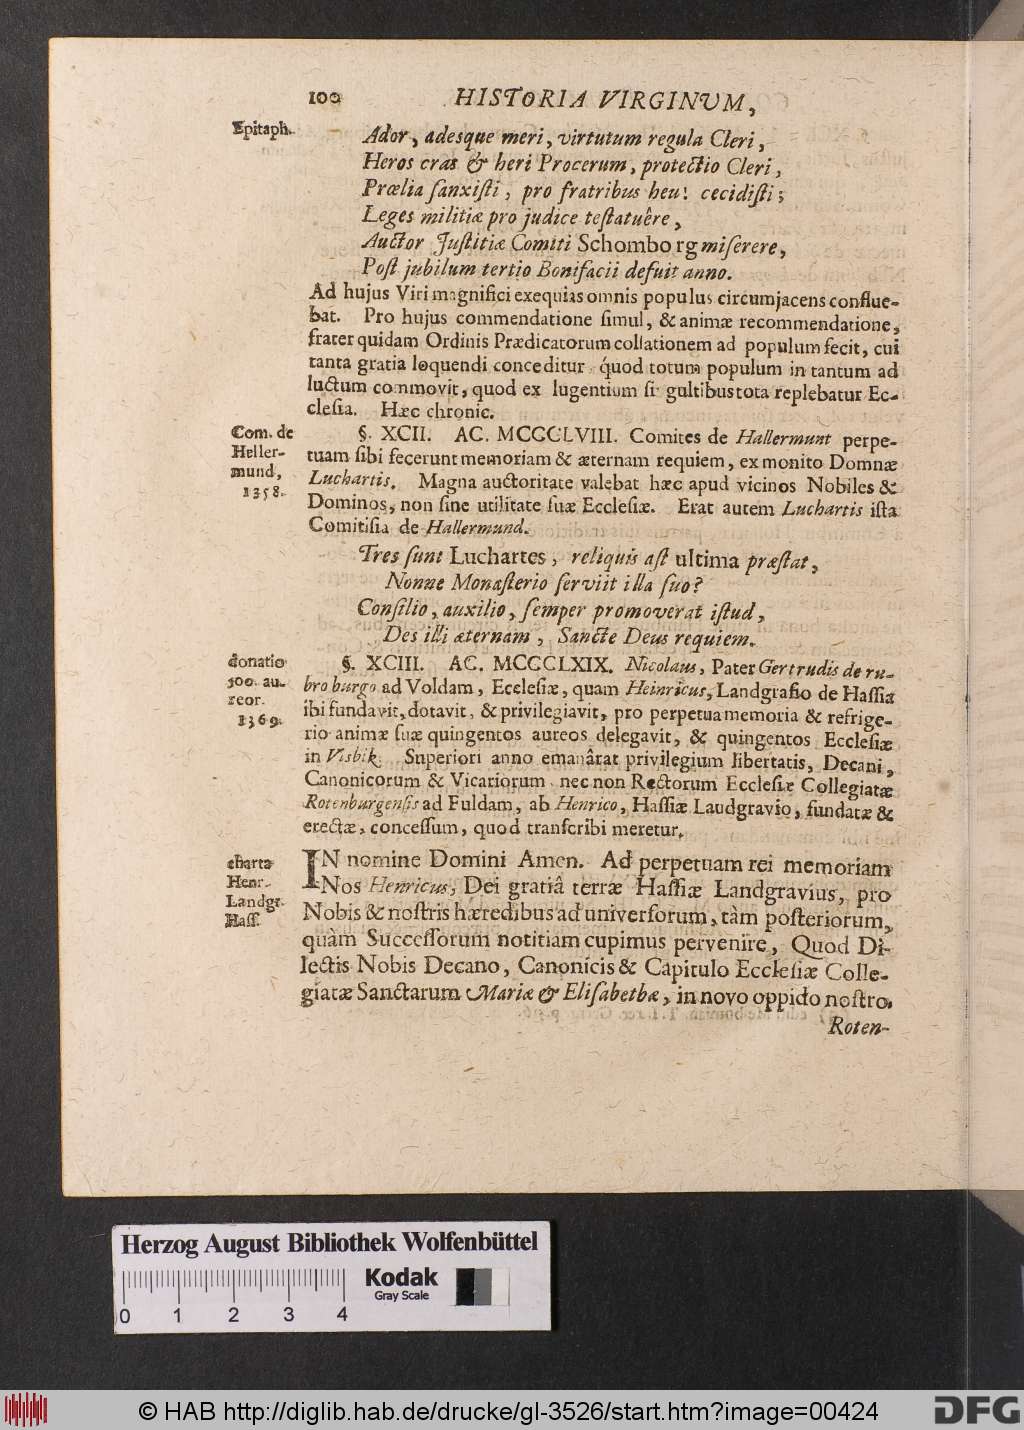 100 HISTORIA VIRGINUM,
Epitaph. Ador, adesque meri, virtutum regula Cleri,
Heros cras & heri Procerum, protectio Cleri,
Prælia sanxisti, pro fratribus heu! cecidisti;
Leges militiæ pro judice testatuêre,
Auctor Justitiæ Comiti Schomborg miserere,
Post jubilum tertio Bonifacii defuit anno.
Ad hujus Viri magnifici exequias omnis populus circumjacens conflue-
bat. Pro hujus commendatione simul, & animæ recommendatione,
frater quidam Ordinis Prædicatorum collationem ad populum fecit, cui
tanta gratia loquendi conceditur quod totum populum in tantum ad
luctum commovit, quod ex lugentium si gultibus tota replebatur Ec-
clesia. Hæc chronic.
Com. de
Heller-
mund,
1358.
§. XCII. AC. MCCCLVIII. Comites de Hallermunt perpe-
tuam sibi fecerunt memoriam & æternam requiem, ex monito Domnæ
Luchartis. Magna auctoritate valebat hæc apud vicinos Nobiles &
Dominos, non sine utilitate suæ Ecclesiæ. Erat autem Luchartis ista
Comitisia de Hallermund.
Tres sunt Luchartes, reliquis ast ultima præstat,
Nonne Monasterio serviit illa suo?
Consilio, auxilio, semper promoverat istud,
Des illi æternam, Sancte Deus requiem.
donatio
500. au-
reor.
1369.
§. XCIII. AC. MCCCLXIX. Nicolaus, Pater Gertrudis de ru-
bro burgo ad Voldam, Ecclesiæ, quam Heinricus, Landgrafio de Hassia
ibi fundavit, dotavit, & privilegiavit, pro perpetua memoria & refrige-
rio animæ suæ quingentos aureos delegavit, & quingentos Ecclesiæ
in Visbik. Superiori anno emanârat privilegium libertatis, Decani,
Canonicorum & Vicariorum nec non Rectorum Ecclesiæ Collegiatæ
Rotenburgensis ad Fuldam, ab Henrico, Hassiæ Laudgravio, fundatæ &
erectæ, concessum, quod transcribi meretur.
charta
Henr.
Landgr.
Hass.
IN nomine Domini Amen. Ad perpetuam rei memoriam
Nos Henricus, Dei gratiâ terræ Hassiæ Landgravius, pro
Nobis & nostris hæredibus ad universorum, tàm posteriorum,
quàm Successorum notitiam cupimus pervenire, Quod Di-
lectis Nobis Decano, Canonicis & Capitulo Ecclesiæ Colle-
giatæ Sanctarum Mariæ & Elisabethæ, in novo oppido nostro
Roten-
Herzog August Bibliothek Wolfenbüttel
Kodak
Gray Scale
0 1 2 3 4
© HAB http://diglib.hab.de/drucke/gl-3526/start.htm?image=00424
DFG